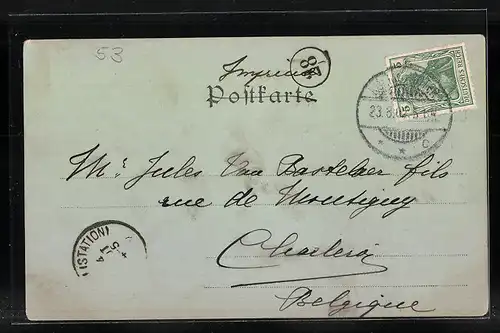 53
28
Imprimé
Postkarte
DEUTSCHES REICH
5
5
23.8.02.
* * c
Mr Jules Van Bastelaer fils
rue de Montigny
Charleroi
Belgique
(STATION)